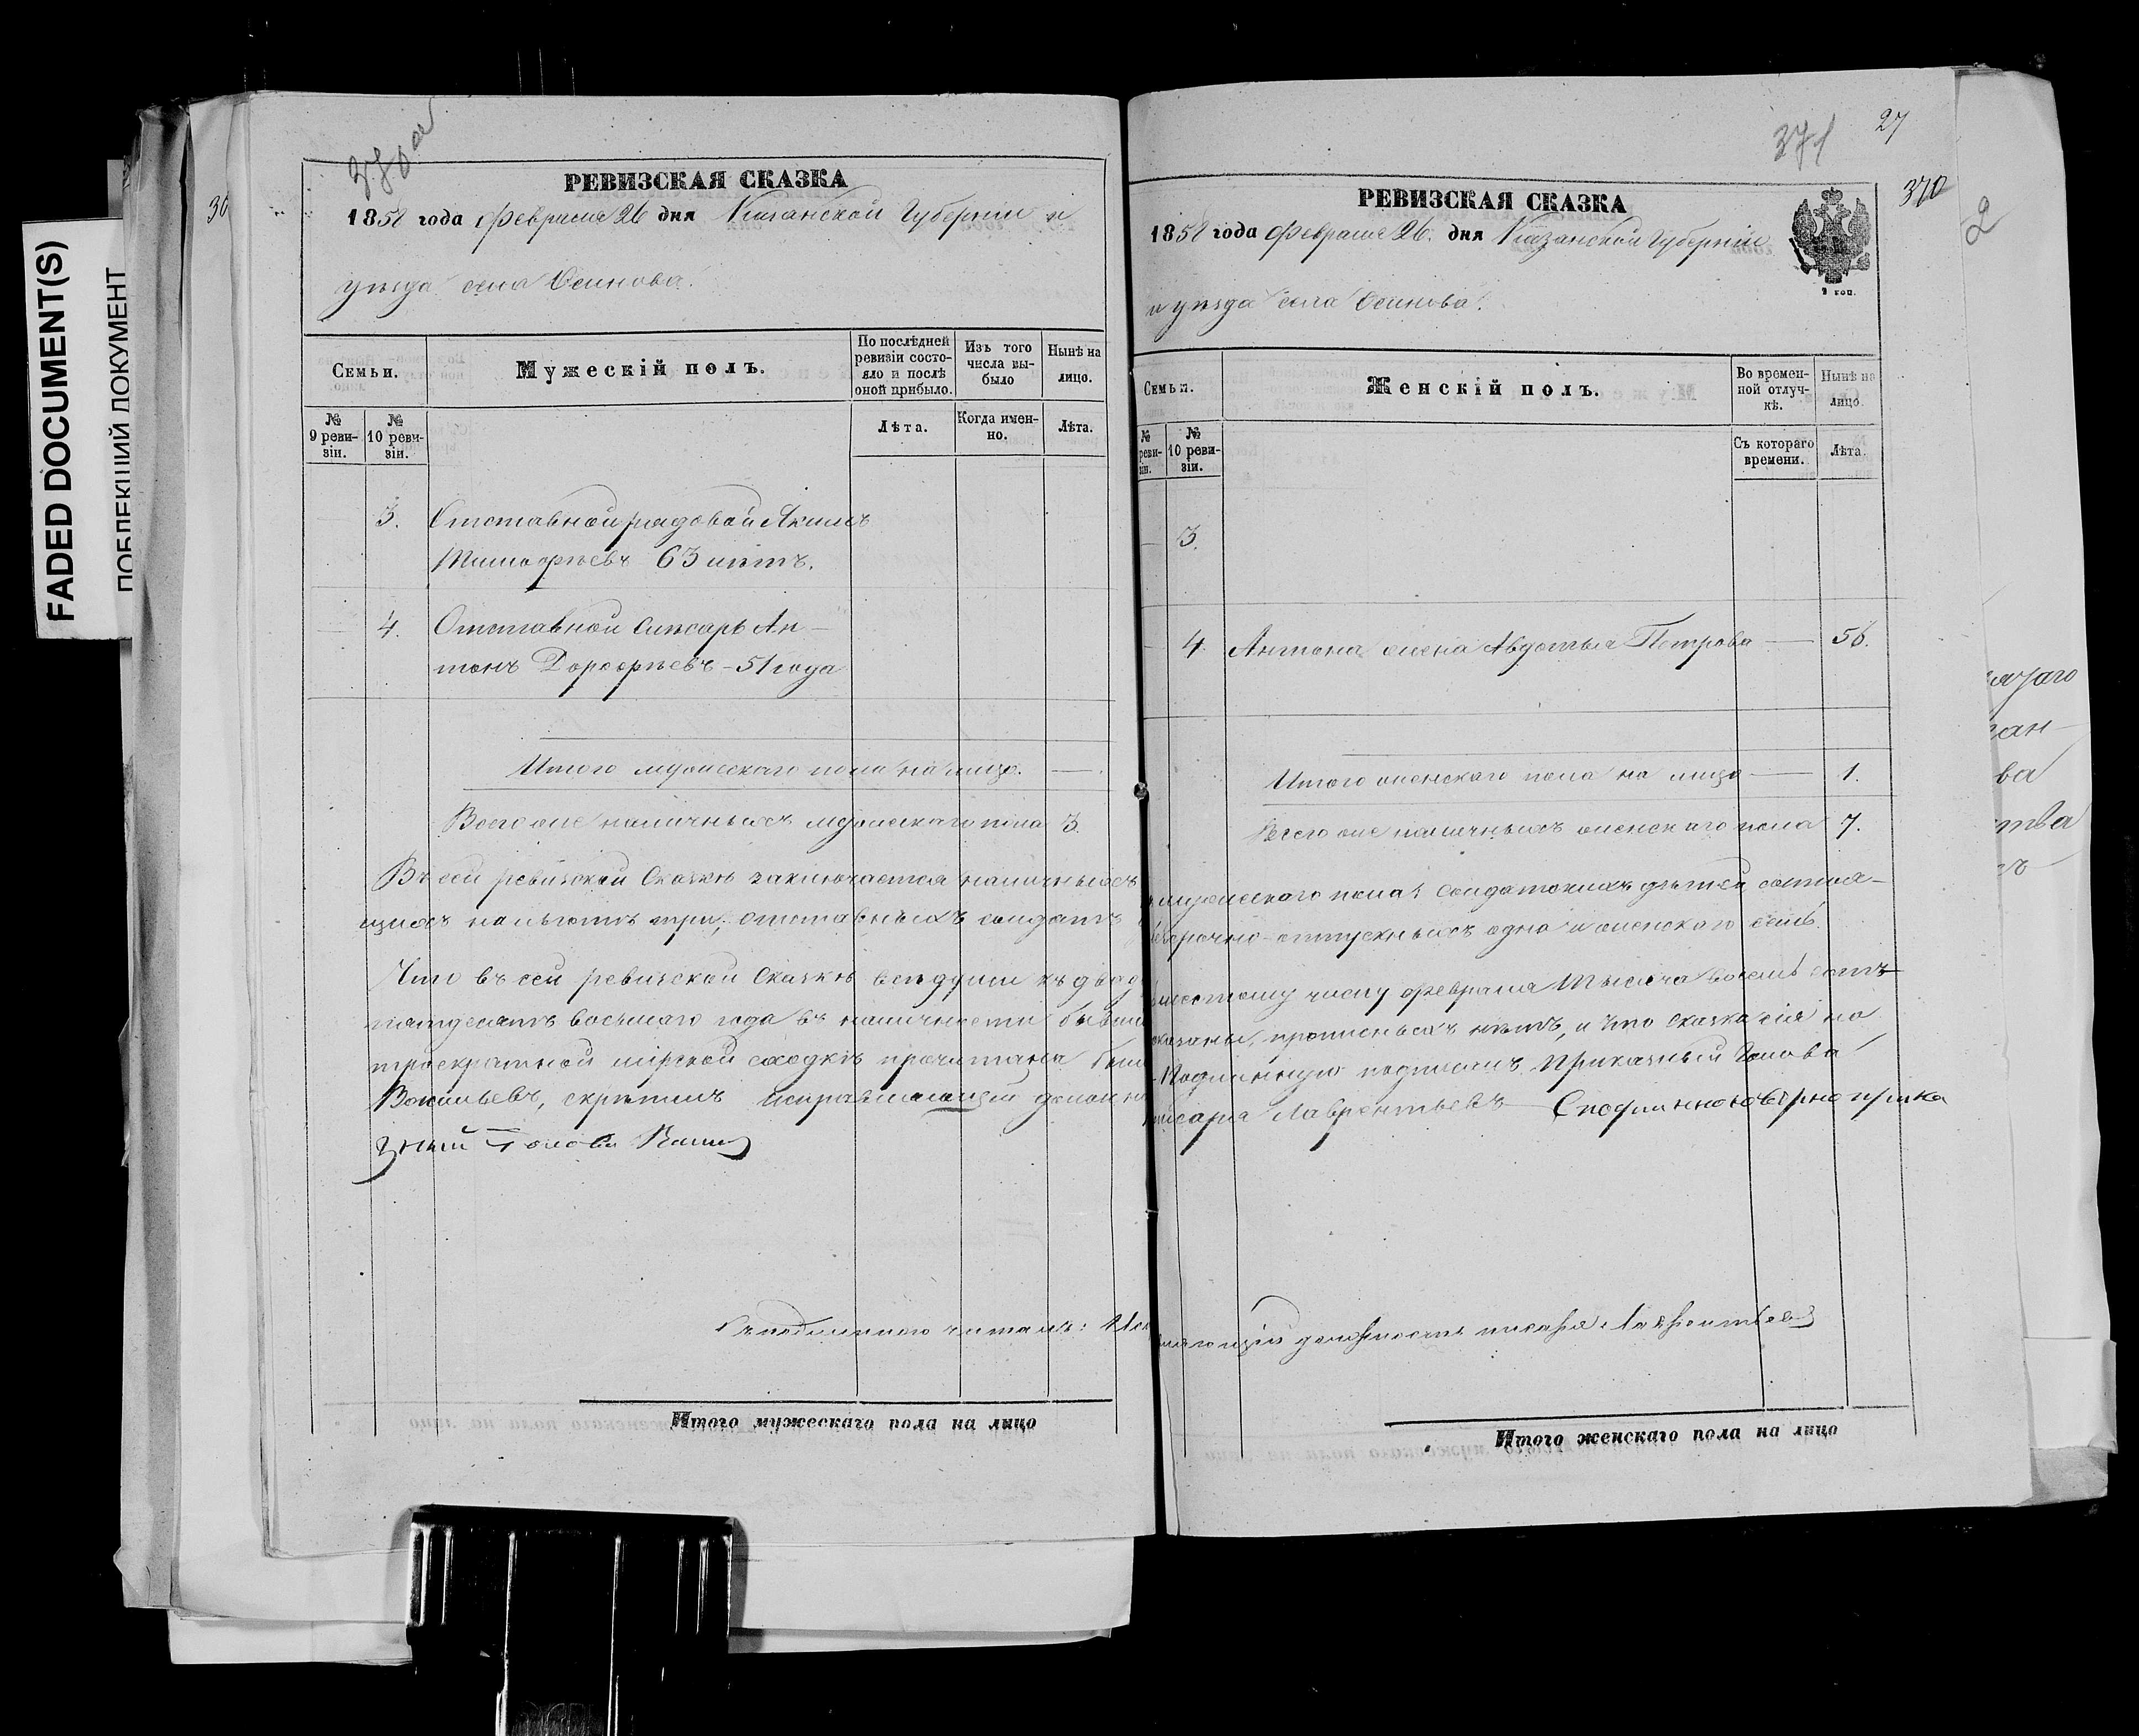 FADED DOCUMENT(S)
ПОБЛЕКШИЙ ДОКУМЕНТ
36
РЕВИЗСКАЯ СКАЗКА
1858 года Февраля 26 дня Казанской Губерніи и
уѣзда села Осинова.
Семьи.
Мужескій полъ.
По послѣдней ревизіи состояло и послѣ оной прибыло.
Изъ того числа выбыло
Нынѣ на лицо.
№ 9 ревизіи.
№ 10 ревизіи.
Лѣта.
Когда именно.
Лѣта.
3. Отставной рядовой Акимъ
Тимофѣевъ 63 лѣтъ.
4. Отставной Слесарь Ан-
тонъ Дорофѣевъ - 51 года
Итого мужескаго пола на лицо. —
Всего же наличныхъ мужескаго пола 3.
Въ сей ревизской Сказкѣ заключается наличныхъ
щихъ на льготѣ три, отставныхъ солдатъ
Что въ сей ревизской Сказкѣ всѣ души къ двад
пятдесятъ восьмаго года въ наличности бывш
троекратной мірской сходкѣ прочитана была
Васильевъ, скрѣпилъ Исправляющій должн
зный Голова
Съ подлиннымъ читалъ: Исп
Итого мужескаго пола на лицо
27
371
370
2
РЕВИЗСКАЯ СКАЗКА
1858 года Февраля 26. дня Казанской Губерніи
и уѣзда села Осинова.
2 коп.
Семьи.
Женскій полъ.
Во временной отлучкѣ.
Нынѣ на лицо.
№ реви-зіи.
№ 10 ревизіи.
Съ котораго времени.
Лѣта.
3.
4. Антона жена Авдотья Петрова — 56.
Итого женскаго пола на лицо — 1.
Всего же наличныхъ женскаго пола 7.
мужескаго пола: солдатскихъ дѣтей состоя-
безсрочно-отпускныхъ одно и женскаго семь.
шестому числу февраля Тысяча восемь сотъ
показаны, прописныхъ нѣтъ, и что сказка сія на
Подлинную подписалъ Приказный Голова
писаря Лаврентьевъ Съ подлинною вѣрно прика
вляющій должность писаря Лаврентьевъ
Итого женскаго пола на лицо
ан-
ва
тва